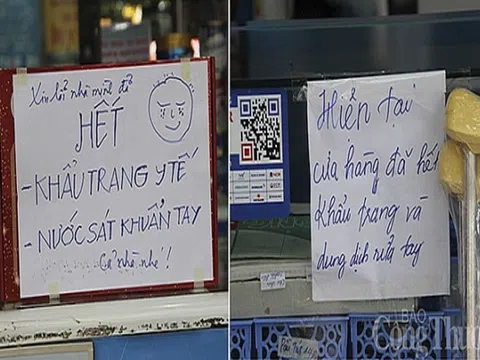 Xin lỗi nhà mình đã
HẾT
- KHẨU TRANG Y TẾ
- NƯỚC SÁT KHUẨN TAY
Cả nhà nhé!
Hiện tại
cửa hàng đã hết
khẩu trang và
dung dịch rửa tay
BÁO
Công Thương